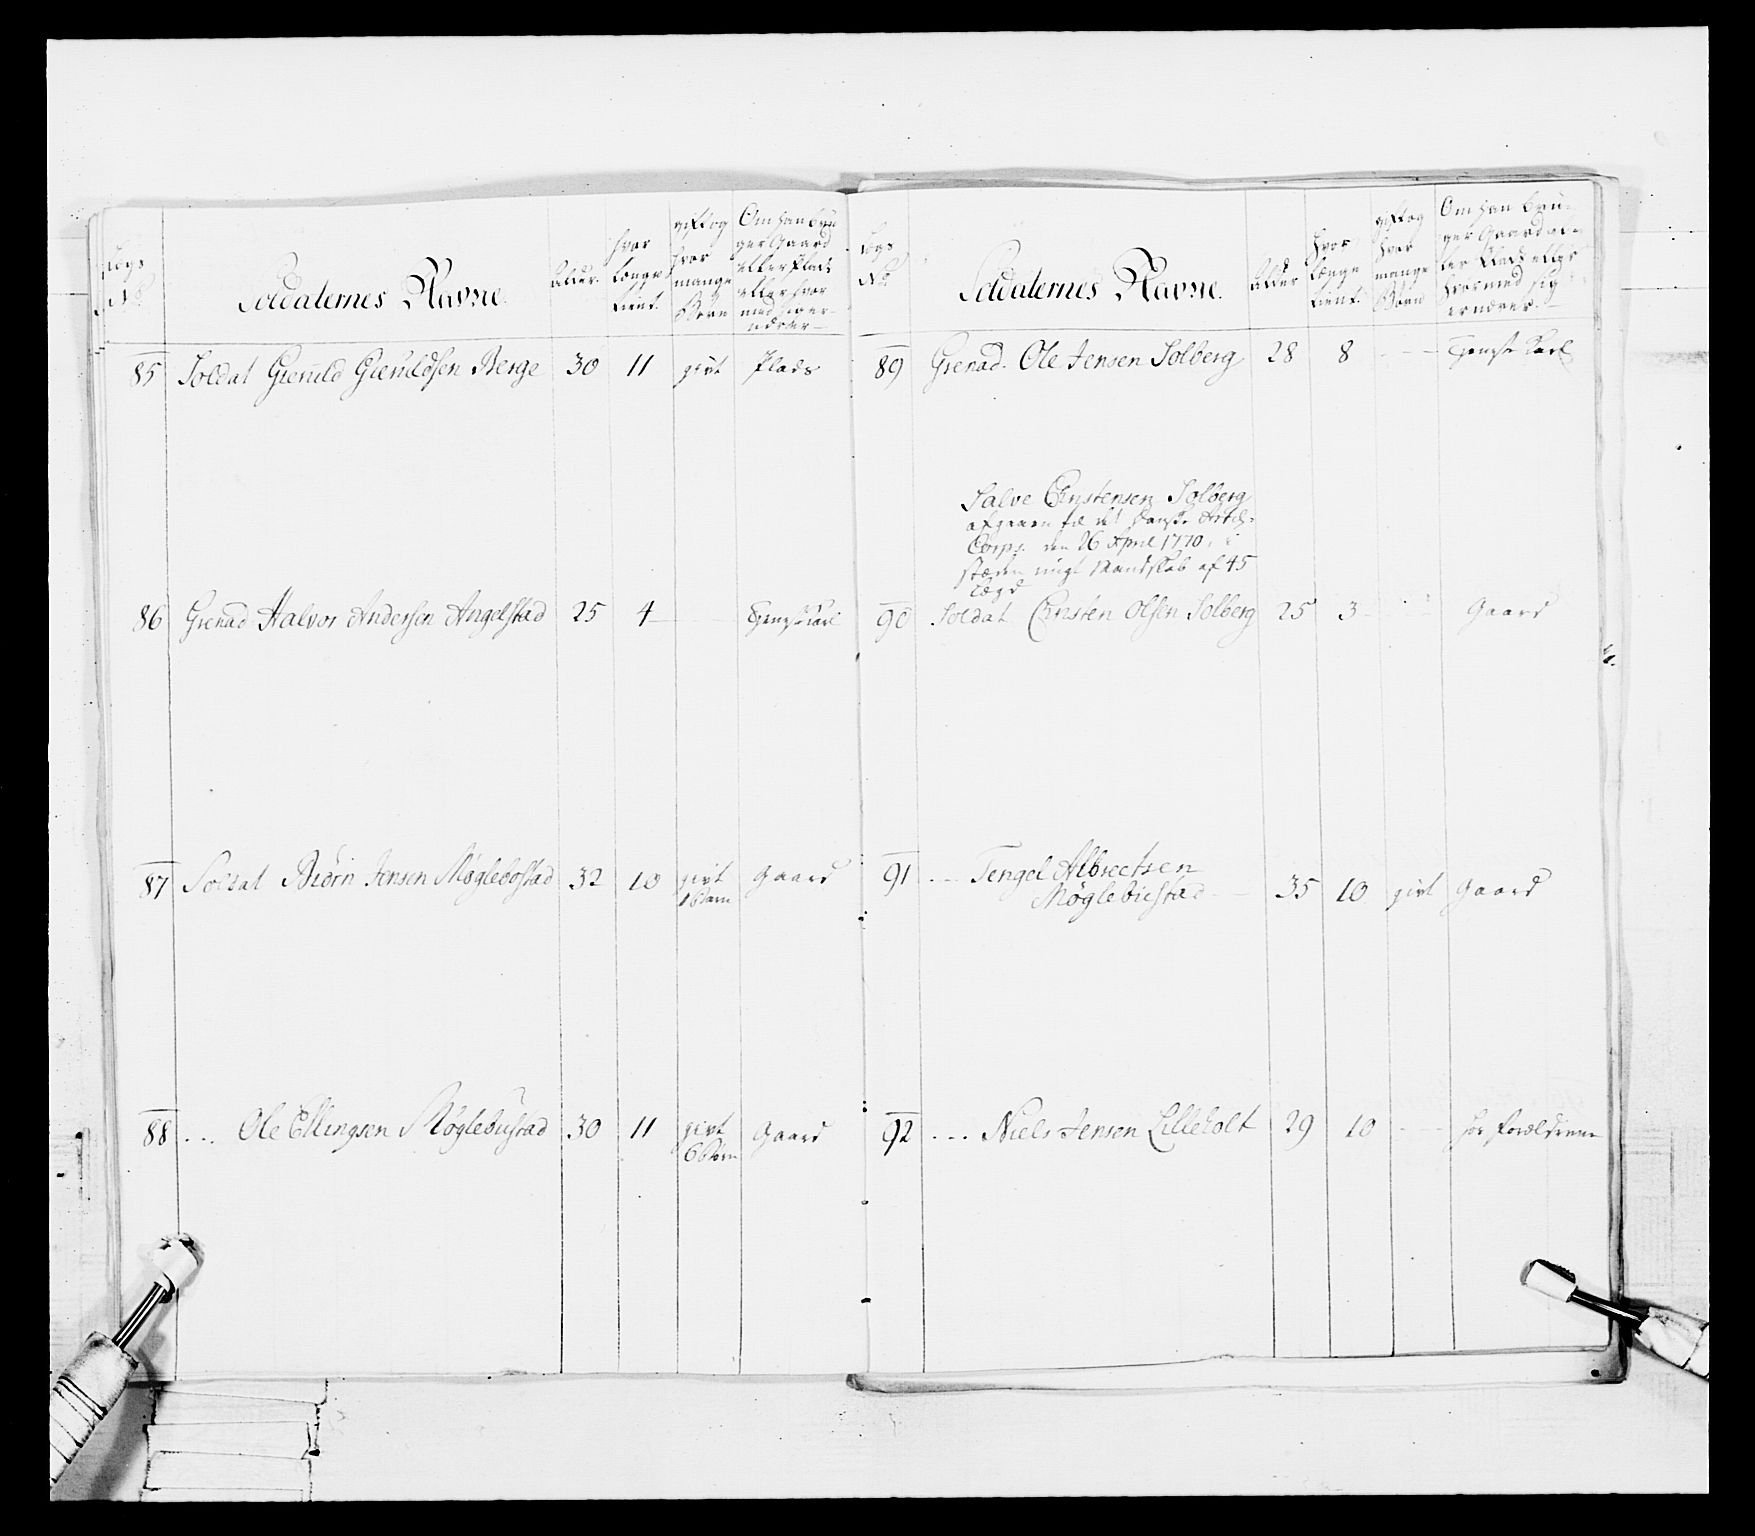 Lægs
No
Soldaternes Navne.
Alder.
hvor
længe
tient.
gift og
hvor
mange
Børn
Om han bru
ger Gaard
eller Plads
eller hvor
med sig er
nærer
85 Soldat Gieruld Gieruldsen Berge 30 11 givt Plads
86 Grenad. Halvor Andersen Angelstad 25 4
87 Soldat Biørn Jensen Møglebostad 32 10 givt Gaard
1 Barn
88 ... Ole Ellingsen Møglebustad 30 11 givt Gaard
6 Børn
Lægs
No
Soldaternes Navne.
Alder
hvor
længe
tient.
gift og
hvor
mange
Børn
Om han bru-
ger Gaard el-
ler Plads eller
hvormed sig
ernærer.
89 Grenad. Ole Jensen Solberg 28 8 - - Tieneste Karl
Salve Christensen Solberg
afgaaen til det Danske Artol.
Corps. den 26 April 1770, i
stæden nyt Mandskab af 45
Lægd
90 Soldat Christen Olsen Solberg 25 3 - - Gaard
91 ... Tengel Albrectsen
Møglebustad - 35 10 givt Gaard
92 ... Niels Jensen Lilleholt 29 10 - - hos Forældrene